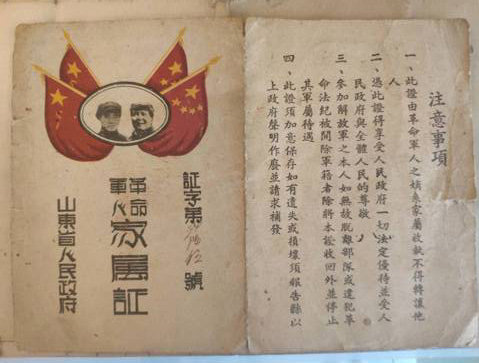 証字第 號
革命
軍人
家属証
山東省人民政府
注意事項
一、此證由革命軍人之嫡系家屬收執不得轉讓他
人
二、憑此證得享受人民政府一切法定優待並受人
民政府與全體人民的尊敬
三、參加解放軍之本人如無故脫離部隊或違犯革
命法紀被開除軍籍者除將本證收回外並停止
其軍屬待遇
四、此證須加意保存如有遺失或損壞須報告縣以
上政府聲明作廢並請求補發